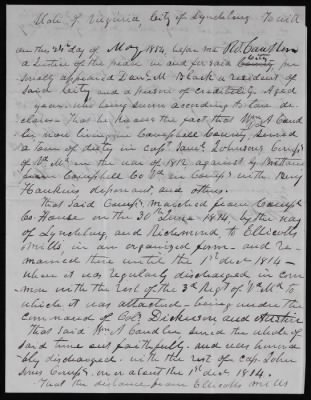 State of Virginia City of Lynchburg To wit
On the 24th day of May 1854, before me
a Justice of the peace in and for said City per
sonally appeared Danl. M. Black a resident of
said City and a person of credibility. Aged
years, who being sworn according to law de
clares That he knows the fact that Wm A Cand
ler now living in Campbell County, served
a tour of duty in Capt Saml. Johnsons Compy
of Va Ma in the war of 1812 against G. Britain
from Campbell Co Va in Compy with Benj
Hawkins deponent, and others.
That said Compy marched from Campbell
Co House on the 30th June 1814, by the way
of Lynchburg, and Richmond, to Ellicotts
Mills in an organized form and re-
mained there until the 1st decr 1814 -
when it was regularly discharged in com
mon with the rest of the 3rd Regt of Va Ma to
which it was attached - being under the
command of Colo Dickinson and
That said Wm A Candler served the whole of
said time out faithfully and was honora
bly discharged with the rest of Cap. John
sons Compy on or about the 1st decr 1814.
That the distance from Ellicotts Mills